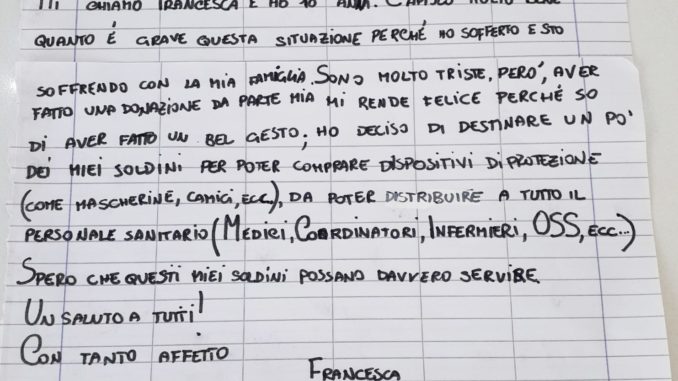 CHIAMO FRANCESCA E HO 10 ANNI. CAPISCO MOLTO BENE
QUANTO É GRAVE QUESTA SITUAZIONE PERCHÉ HO SOFFERTO E STO
SOFFRENDO CON LA MIA FAMIGLIA. SONO MOLTO TRISTE, PERO', AVER
FATTO UNA DONAZIONE DA PARTE MIA MI RENDE FELICE PERCHÉ SO
DI AVER FATTO UN BEL GESTO; HO DECISO DI DESTINARE UN PO'
DEI MIEI SOLDINI PER POTER COMPRARE DISPOSITIVI DI PROTEZIONE
(COME MASCHERINE, CAMICI, ECC), DA POTER DISTRIBUIRE A TUTTO IL
PERSONALE SANITARIO (MEDICI, COORDINATORI, INFERMIERI, OSS, ECC...)
SPERO CHE QUESTI MIEI SOLDINI POSSANO DAVVERO SERVIRE.
UN SALUTO A TUTTI!
CON TANTO AFFETTO
FRANCESCA